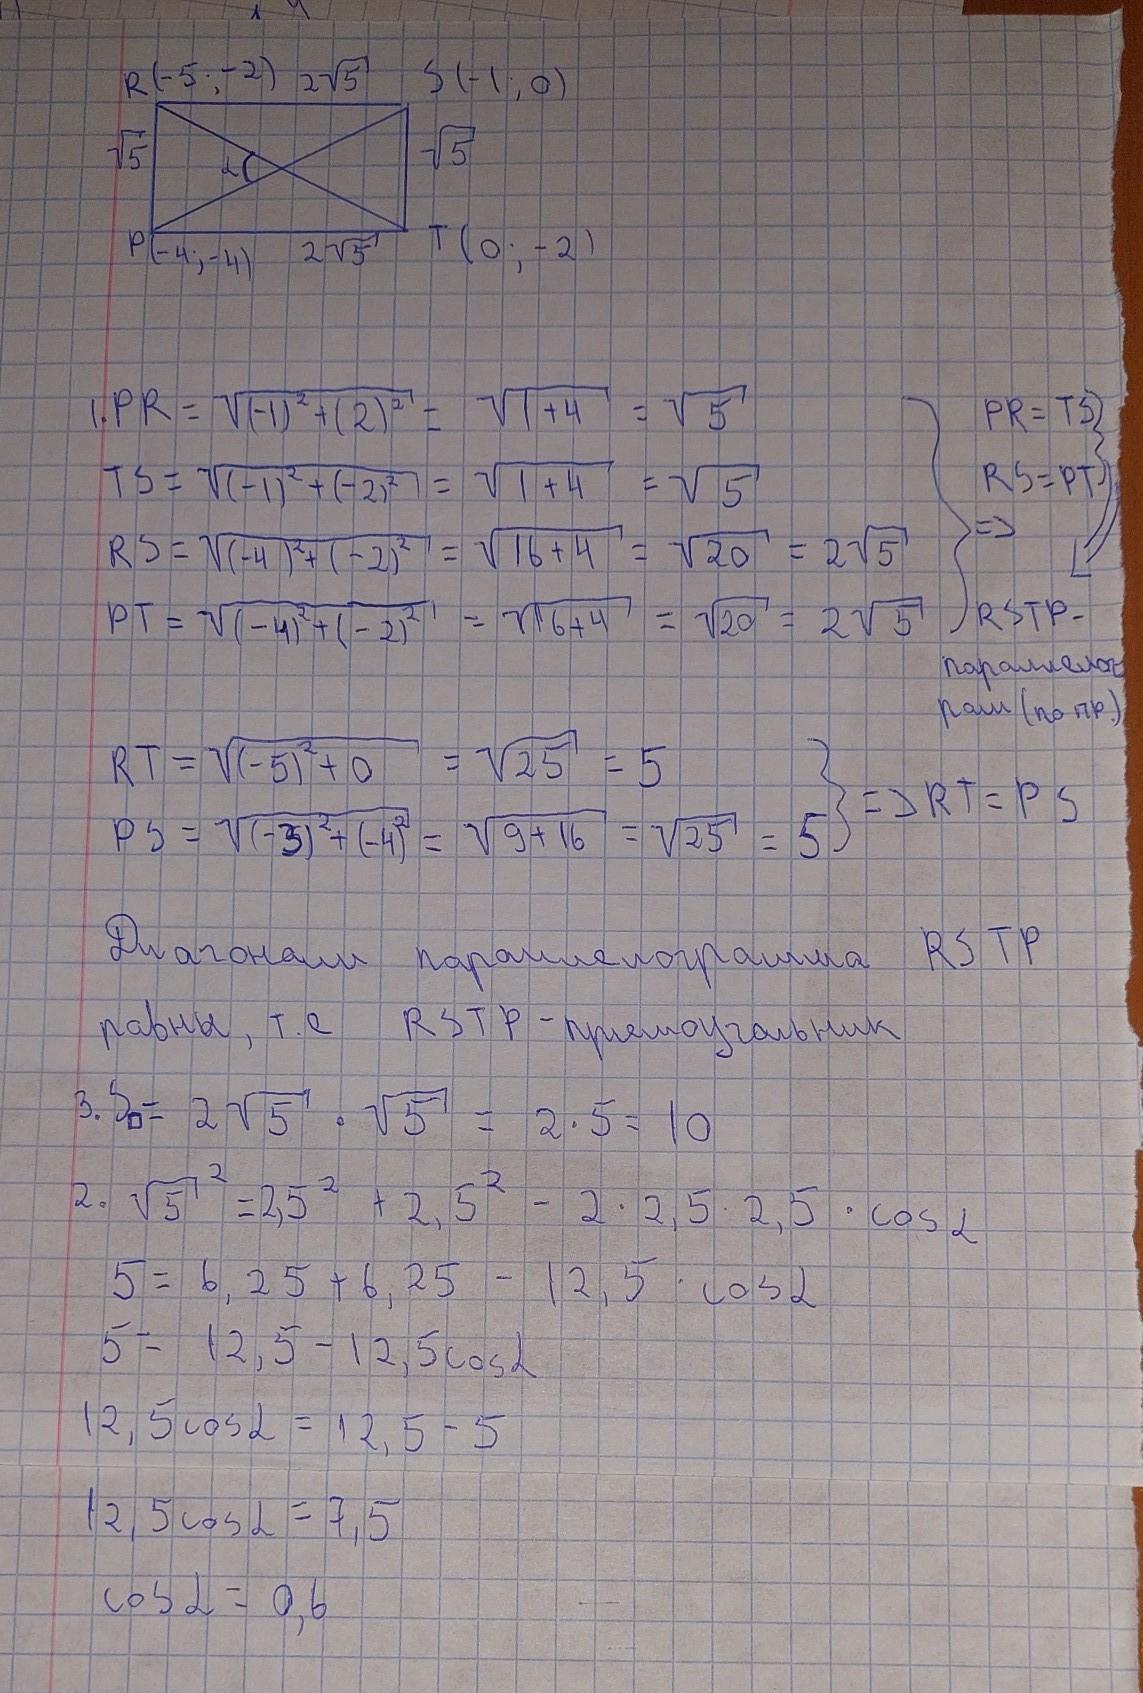 R(-5; -2) 2√5 S(-1; 0)
√5 α √5
P(-4; -4) 2√5 T(0; -2)
1. PR = √(-1)²+(2)² = √1+4 = √5
TS = √(-1)²+(-2)² = √1+4 = √5
RS = √(-4)²+(-2)² = √16+4 = √20 = 2√5
PT = √(-4)²+(-2)² = √16+4 = √20 = 2√5
PR = TS
RS = PT
=>
RSTP-
параллелог
рам (по пр.)
RT = √(-5)²+0 = √25 = 5
PS = √(-3)²+(-4)² = √9+16 = √25 = 5
=> RT = PS
Диагонали параллелограмма RSTP
равны, т.е RSTP - прямоугольник
3. S▭ = 2√5 · √5 = 2·5 = 10
2. √5² = 2,5² + 2,5² - 2·2,5·2,5·cosα
5 = 6,25 + 6,25 - 12,5·cosα
5 = 12,5 - 12,5cosα
12,5cosα = 12,5 - 5
12,5cosα = 7,5
cosα = 0,6